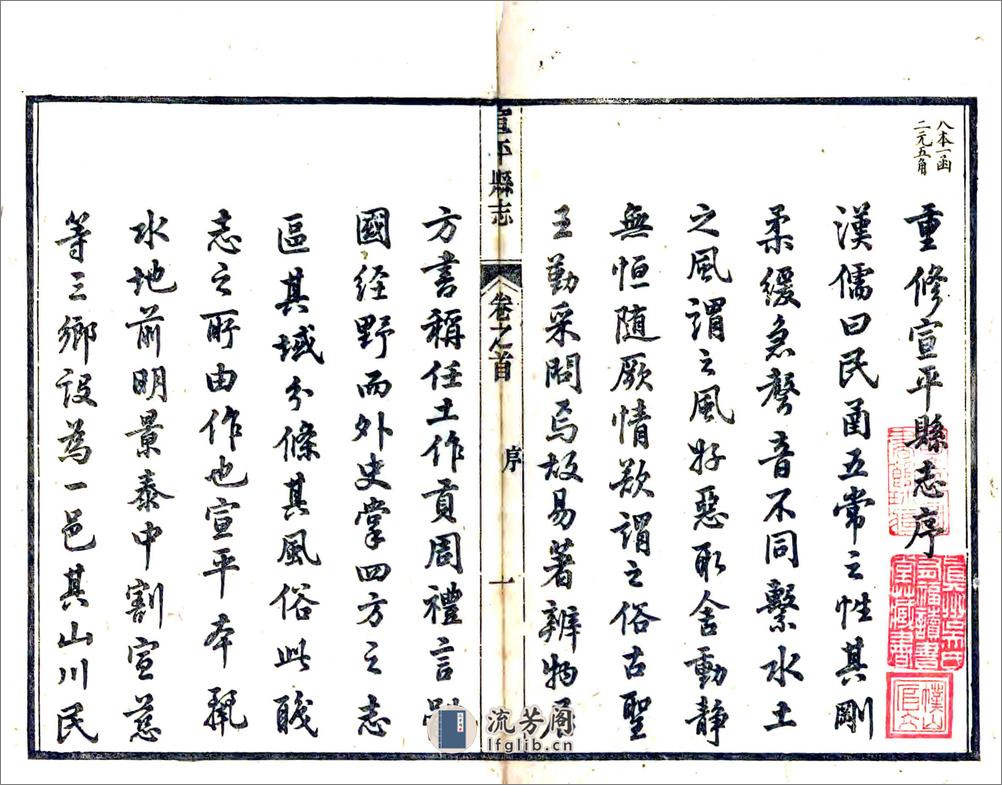 八本一函
二元五角
重修宣平縣志序
漢儒曰民函五常之性其剛
柔緩急聲音不同繫水土
之風謂之風好惡取舍動静
無恒随厥情欲謂之俗古聖
王勤采問焉故易著辨物居
方書稱任土作貢周禮言體
國经野而外史掌四方之志
區其域分條其風俗此職
志之所由作也宣平本麗
水地前明景泰中割宣慈
等三鄉設為一邑其山川民
宣平縣志
卷之首
序
一
流芳阁
lfglib.cn